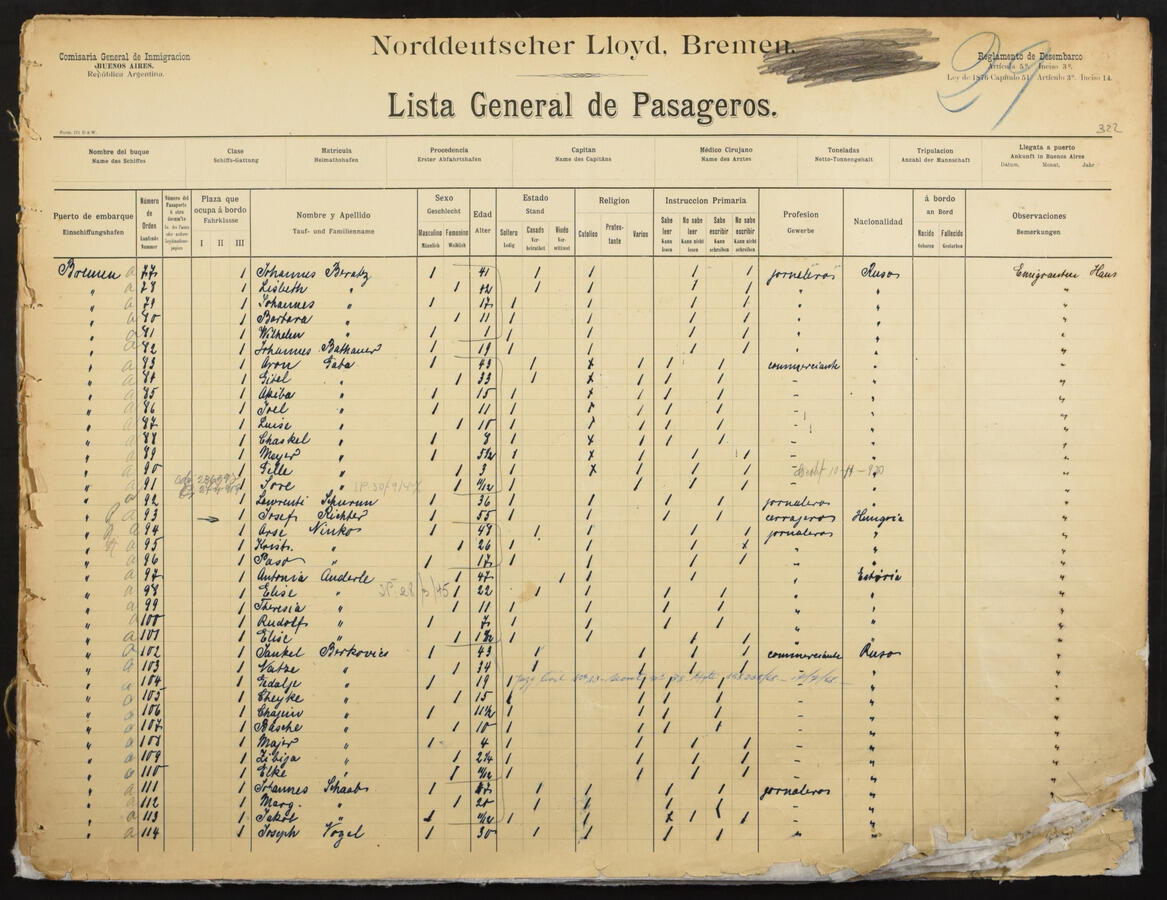 Norddeutscher Lloyd, Bremen.
Comisaria General de Inmigracion
BUENOS AIRES.
República Argentina.
Reglamento de Desembarco
Artículo 5º Inciso 3º
Ley de 1876 Capítulo 51 Artículo 3º. Inciso 14.
29
Lista General de Pasageros.
322
Nombre del buque Clase Matricula Procedencia Capitan Médico Cirujano Toneladas Tripulacion Llegata a puerto
Name das Schiffes Schiffs-Gattung Heimathshafen Erster Abfahrtshafen Name des Capitäns Name des Arztes Netto-Tonnengehalt Anzahl der Mannschaft Ankunft in Buenos Aires
Datum, Monat, Jahr
Puerto de embarque Einschiffungshafen
Número de Orden Laufende Nummer
Plaza que ocupa á bordo Fahrklasse I II III
Nombre y Apellido Tauf- und Familienname
Sexo Geschlecht Masculino Männlich Femenino Weiblich
Edad Alter
Estado Stand Soltero Ledig Casado Verheirathet Viudo Verwittwet
Religion Catolico Protestante Varios
Instruccion Primaria Sabe leer Kann lesen No sabe leer Kann nicht lesen Sabe escribir Kann schreiben No sabe escribir Kann nicht schreiben
Profesion Gewerbe
Nacionalidad
á bordo an Bord Nacido Geboren Fallecido Gestorben
Observaciones Bemerkungen
Bremen a 77 1 Johannes Beratz 1 41 1 1 1 1 jornaleros Ruso Emigranten Haus
" a 78 1 Lisbeth " 1 42 1 1 1 1 " " "
" a 79 1 Johannes " 1 17 1 1 1 1 " " "
" a 80 1 Barbara " 1 11 1 1 1 1 " " "
" a 81 1 Wilhelm " 1 1 1 1 1 1 " " "
" a 82 1 Johannes 1 19 1 1 1 1 " "
" a 83 1 Aron Gaba 1 43 1 x 1 1 1 commerciante " "
" a 84 1 Gisel " 1 33 1 x 1 1 1 " " "
" a 85 1 Akiba " 1 15 1 x 1 1 1 " " "
" a 86 1 Joel " 1 11 1 1 1 1 " " "
" a 87 1 Luise " 1 10 1 1 1 1 " " "
" a 88 1 Chaskel " 1 8 1 x 1 1 1 " " "
" a 89 1 Meyer " 1 1 x 1 1 1 " " "
" a 90 1 " 1 3 1 x 1 1 1 "
" a 91 1 " 1 1 1 1 1 " "
" a 92 1 Lawrenti 1 36 1 1 1 1 jornaleros " "
" a 93 1 Josef Richter 1 55 1 1 1 1 cerrajeros Hungria "
" a 94 1 Arse Ninkov 1 1 1 1 1 jornaleros " "
" a 95 1 " 1 26 1 1 1 x " " "
" a 96 1 " 1 17 1 1 1 1 " " "
" a 97 1 Antonia Anderle 1 47 1 1 1 " "
" a 98 1 Elise " 1 22 1 1 1 1 " " "
" a 99 1 Theresia " 1 11 1 1 1 1 " " "
" a 100 1 Rudolf " 1 7 1 1 1 1 " " "
" a 101 1 Elise " 1 1 1 1 1 " " "
" a 102 1 Jankel Berkovics 1 43 1 1 1 1 commerciante Ruso "
" a 103 1 " 1 34 1 1 1 1 " " "
" a 104 1 Gedalje " 1 19 1 1 1 " "
" a 105 1 Cheyke " 1 15 1 1 1 1 " " "
" a 106 1 " 1 11 1/2 1 1 1 1 " " "
" a 107 1 Basche " 1 10 1 1 1 1 " " "
" a 108 1 Majer " 1 4 1 1 1 1 " " "
" a 109 1 " 1 2 1/4 1 1 1 1 " " "
" a 110 1 Elke " 1 1 1 1 1 " " "
" a 111 1 Johannes Schaab 1 1 1 1 1 jornaleros " "
" a 112 1 Marg. " 1 20 1 1 1 " " "
" a 113 1 Jakob " 1 1 1 1 1 " " "
" a 114 1 Joseph Vogel 1 30 1 1 1 1 " " "